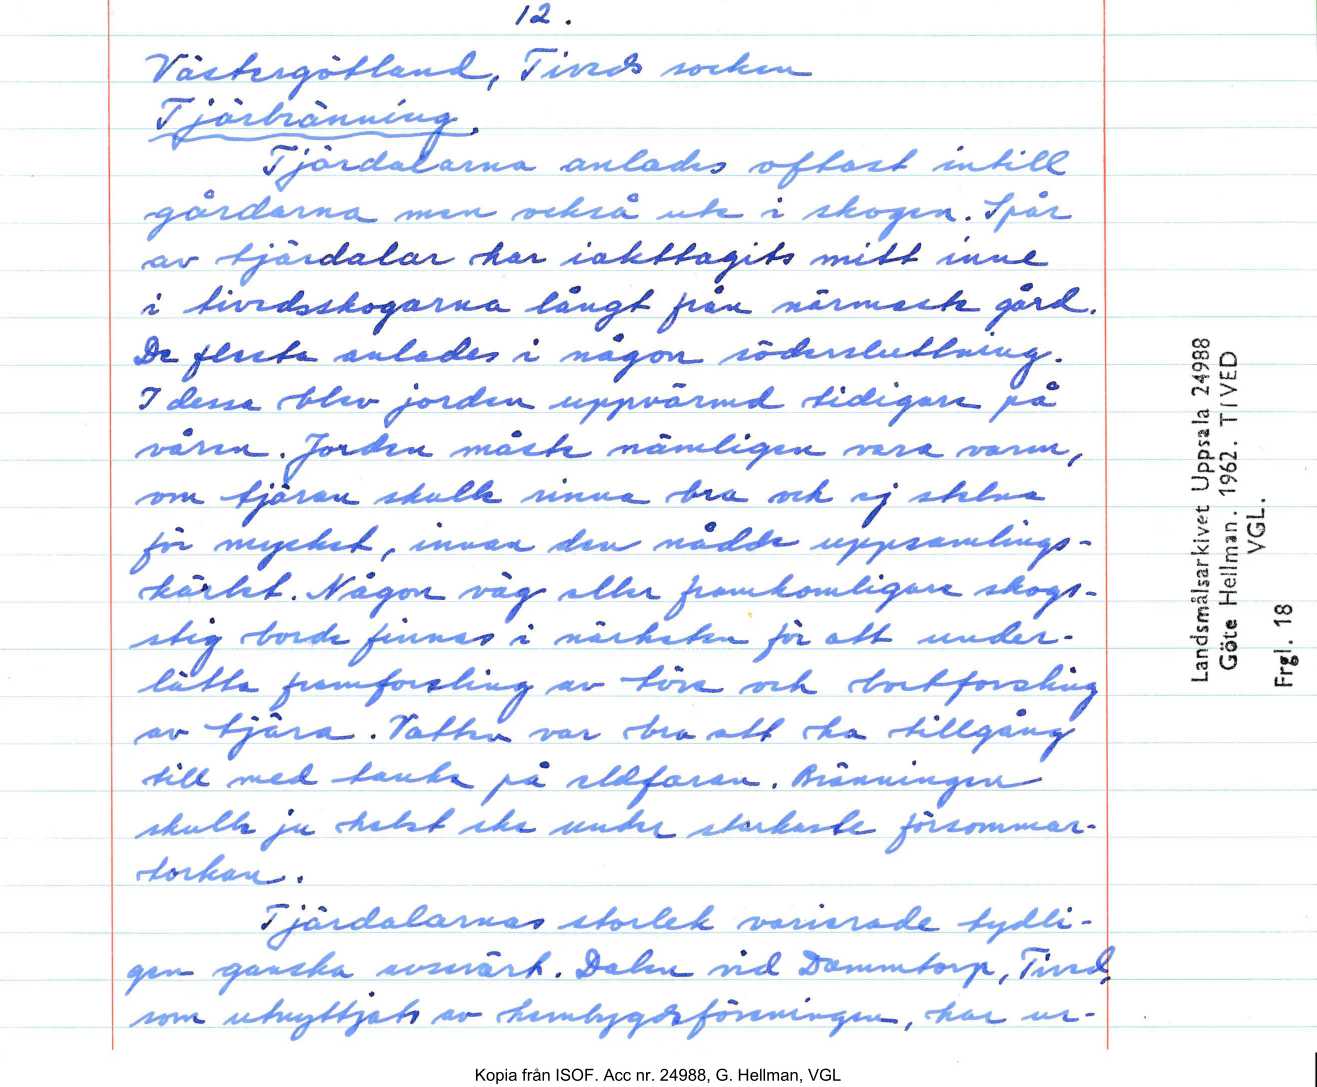 12.
Västergötland, Tiveds socken
Tjärbränning.
Tjärdalarna anlades oftast intill
gårdarna men också ute i skogen. Spår
av tjärdalar har iakttagits mitt inne
i tivedsskogarna långt från närmaste gård.
De flesta anlades i någon södersluttning.
I dessa blev jorden uppvärmd tidigare på
våren. Jorden måste nämligen vara varm,
om tjäran skulle rinna bra och ej stelna
för mycket, innan den nådde uppsamlings-
kärlet. Någon väg eller framkomligare skogs-
stig borde finnas i närheten för att under-
lätta framforsling av töre och bortforsling
av tjära. Vatten var bra att ha tillgång
till med tanke på eldfaran. Bränningen
skulle ju helst ske under starkaste försommar-
torkan.
Tjärdalarnas storlek varierade tydli-
gen ganska avsevärt. Dalen vid Dammtorp, Tived,
som utnyttjats av hembygdsföreningen, har ur-
Landsmålsarkivet Uppsala 24988
Göte Hellman. 1962. TIVED
VGL.
Frgl. 18
Kopia från ISOF. Acc nr. 24988, G. Hellman, VGL